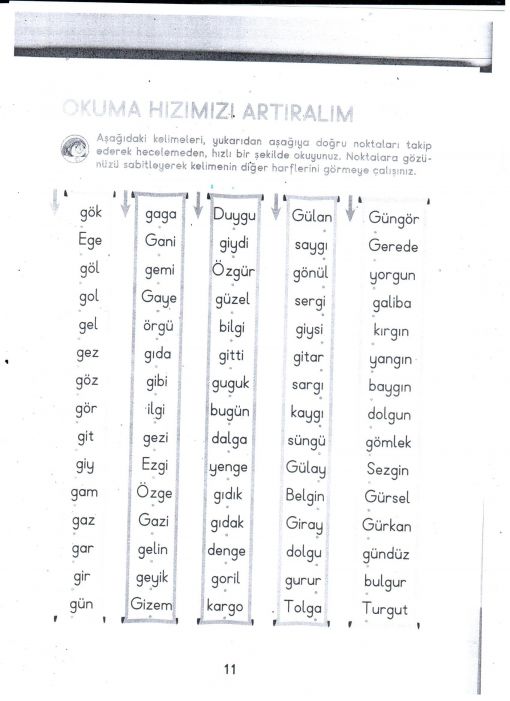 OKUMA HIZIMIZI ARTIRALIM
Aşağıdaki kelimeleri, yukarıdan aşağıya doğru noktaları takip
ederek hecelemeden, hızlı bir şekilde okuyunuz. Noktalara gözü-
nüzü sabitleyerek kelimenin diğer harflerini görmeye çalışınız.
gök
Ege
göl
gol
gel
gez
göz
gör
git
giy
gam
gaz
gar
gir
gün
gaga
Gani
gemi
Gaye
örgü
gıda
gibi
ilgi
gezi
Ezgi
Özge
Gazi
gelin
geyik
Gizem
Duygu
giydi
Özgür
güzel
bilgi
gitti
guguk
bugün
dalga
yenge
gıdık
gıdak
denge
goril
kargo
Gülan
saygı
gönül
sergi
giysi
gitar
sargı
kaygı
süngü
Gülay
Belgin
Giray
dolgu
gurur
Tolga
Güngör
Gerede
yorgun
galiba
kırgın
yangın
baygın
dolgun
gömlek
Sezgin
Gürsel
Gürkan
gündüz
bulgur
Turgut
11